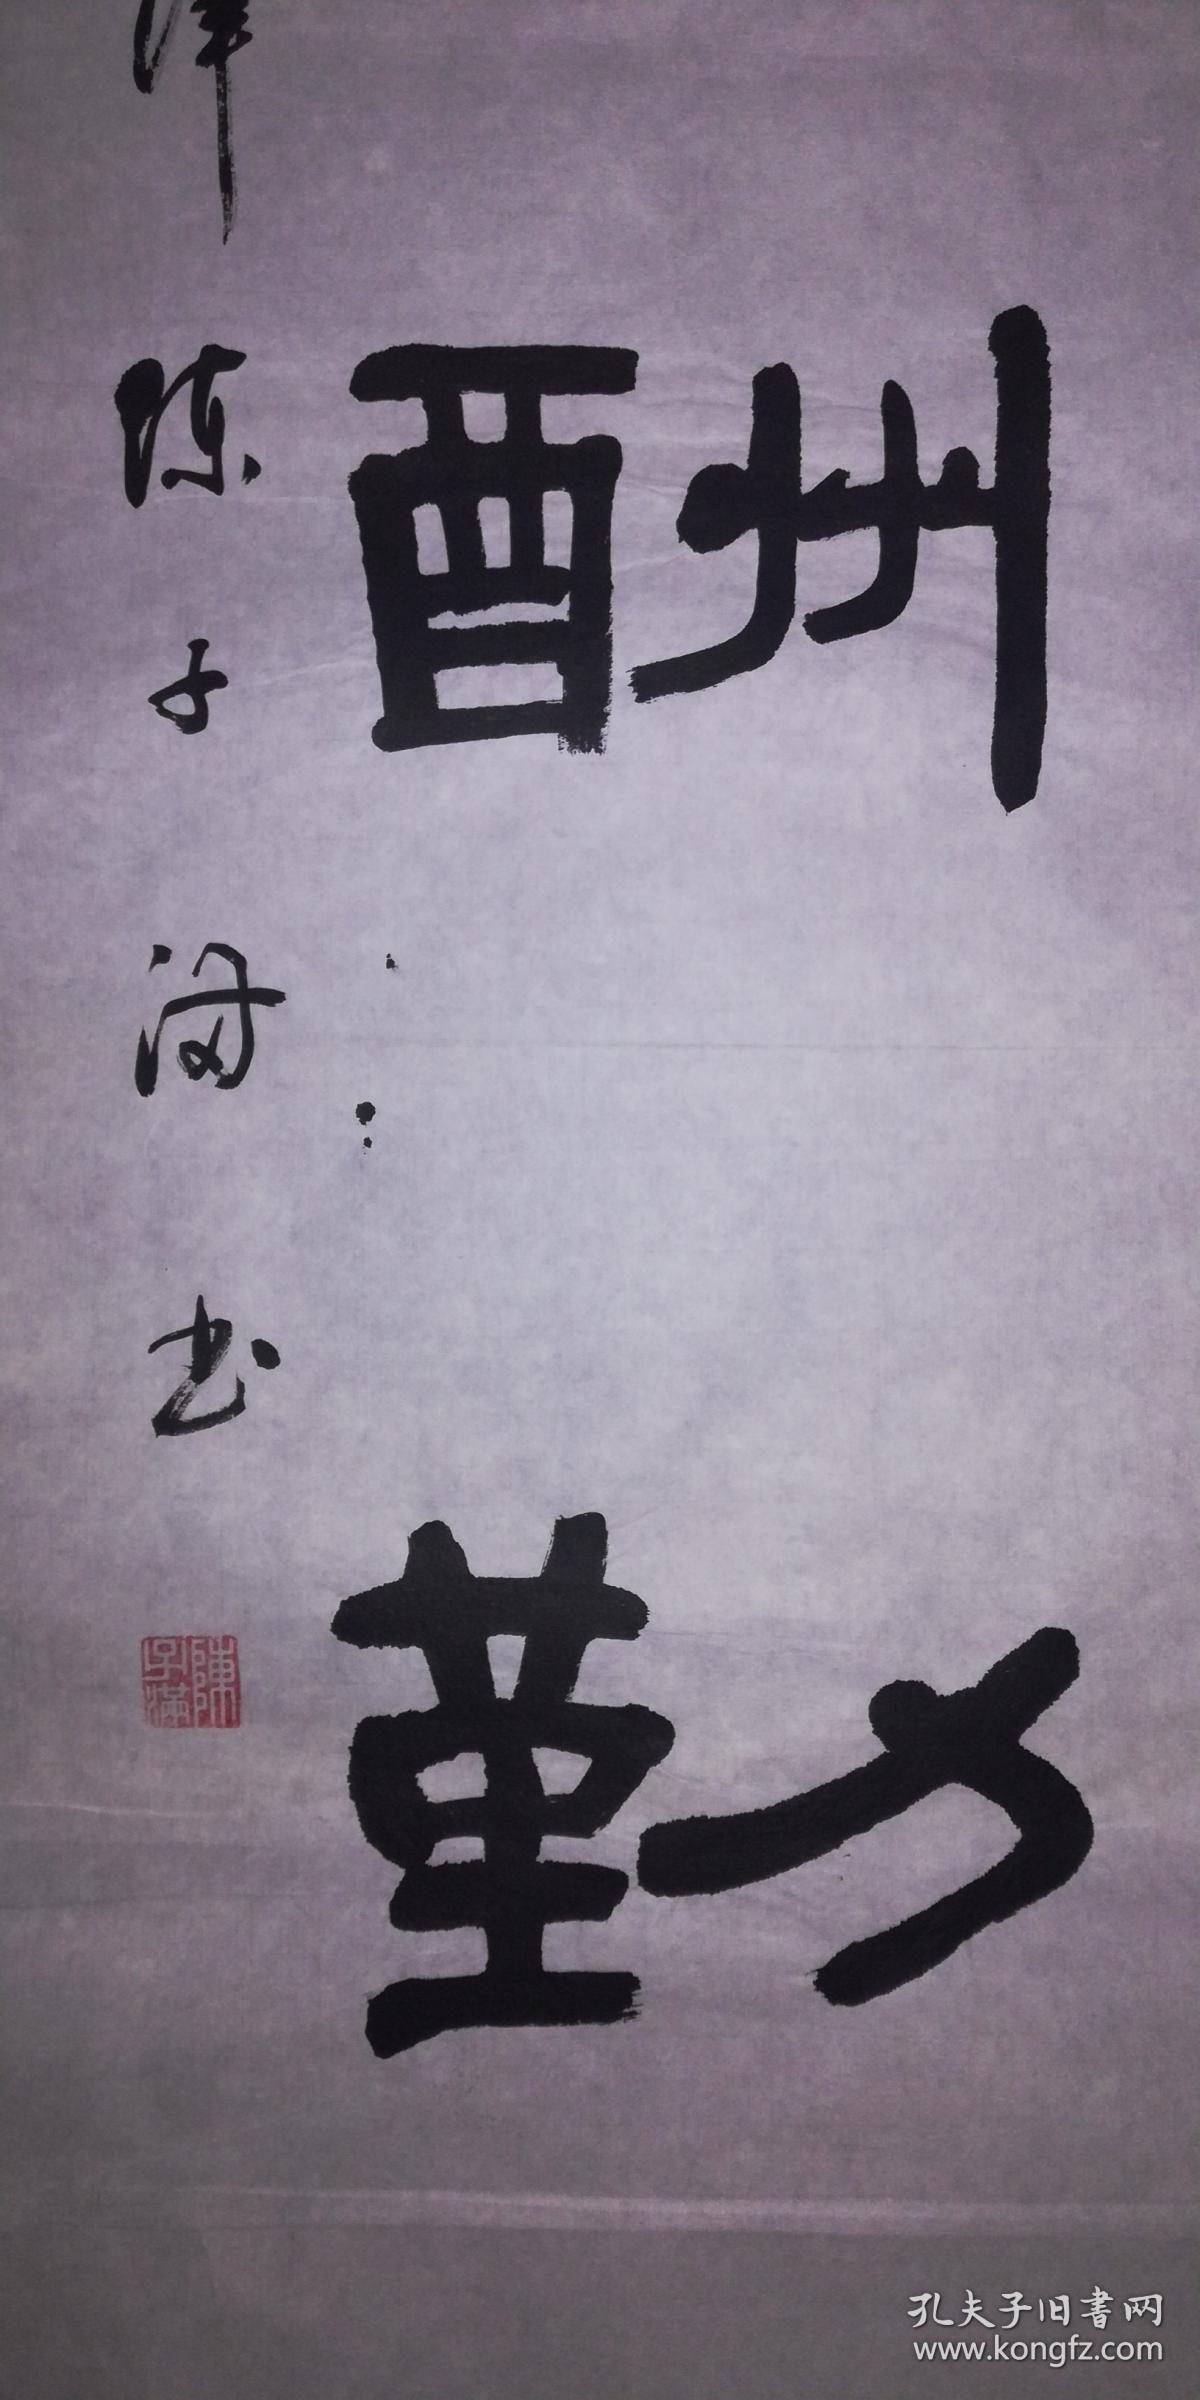 酬勤
陈子满书
陳子滿
孔夫子旧書网
www.kongfz.com